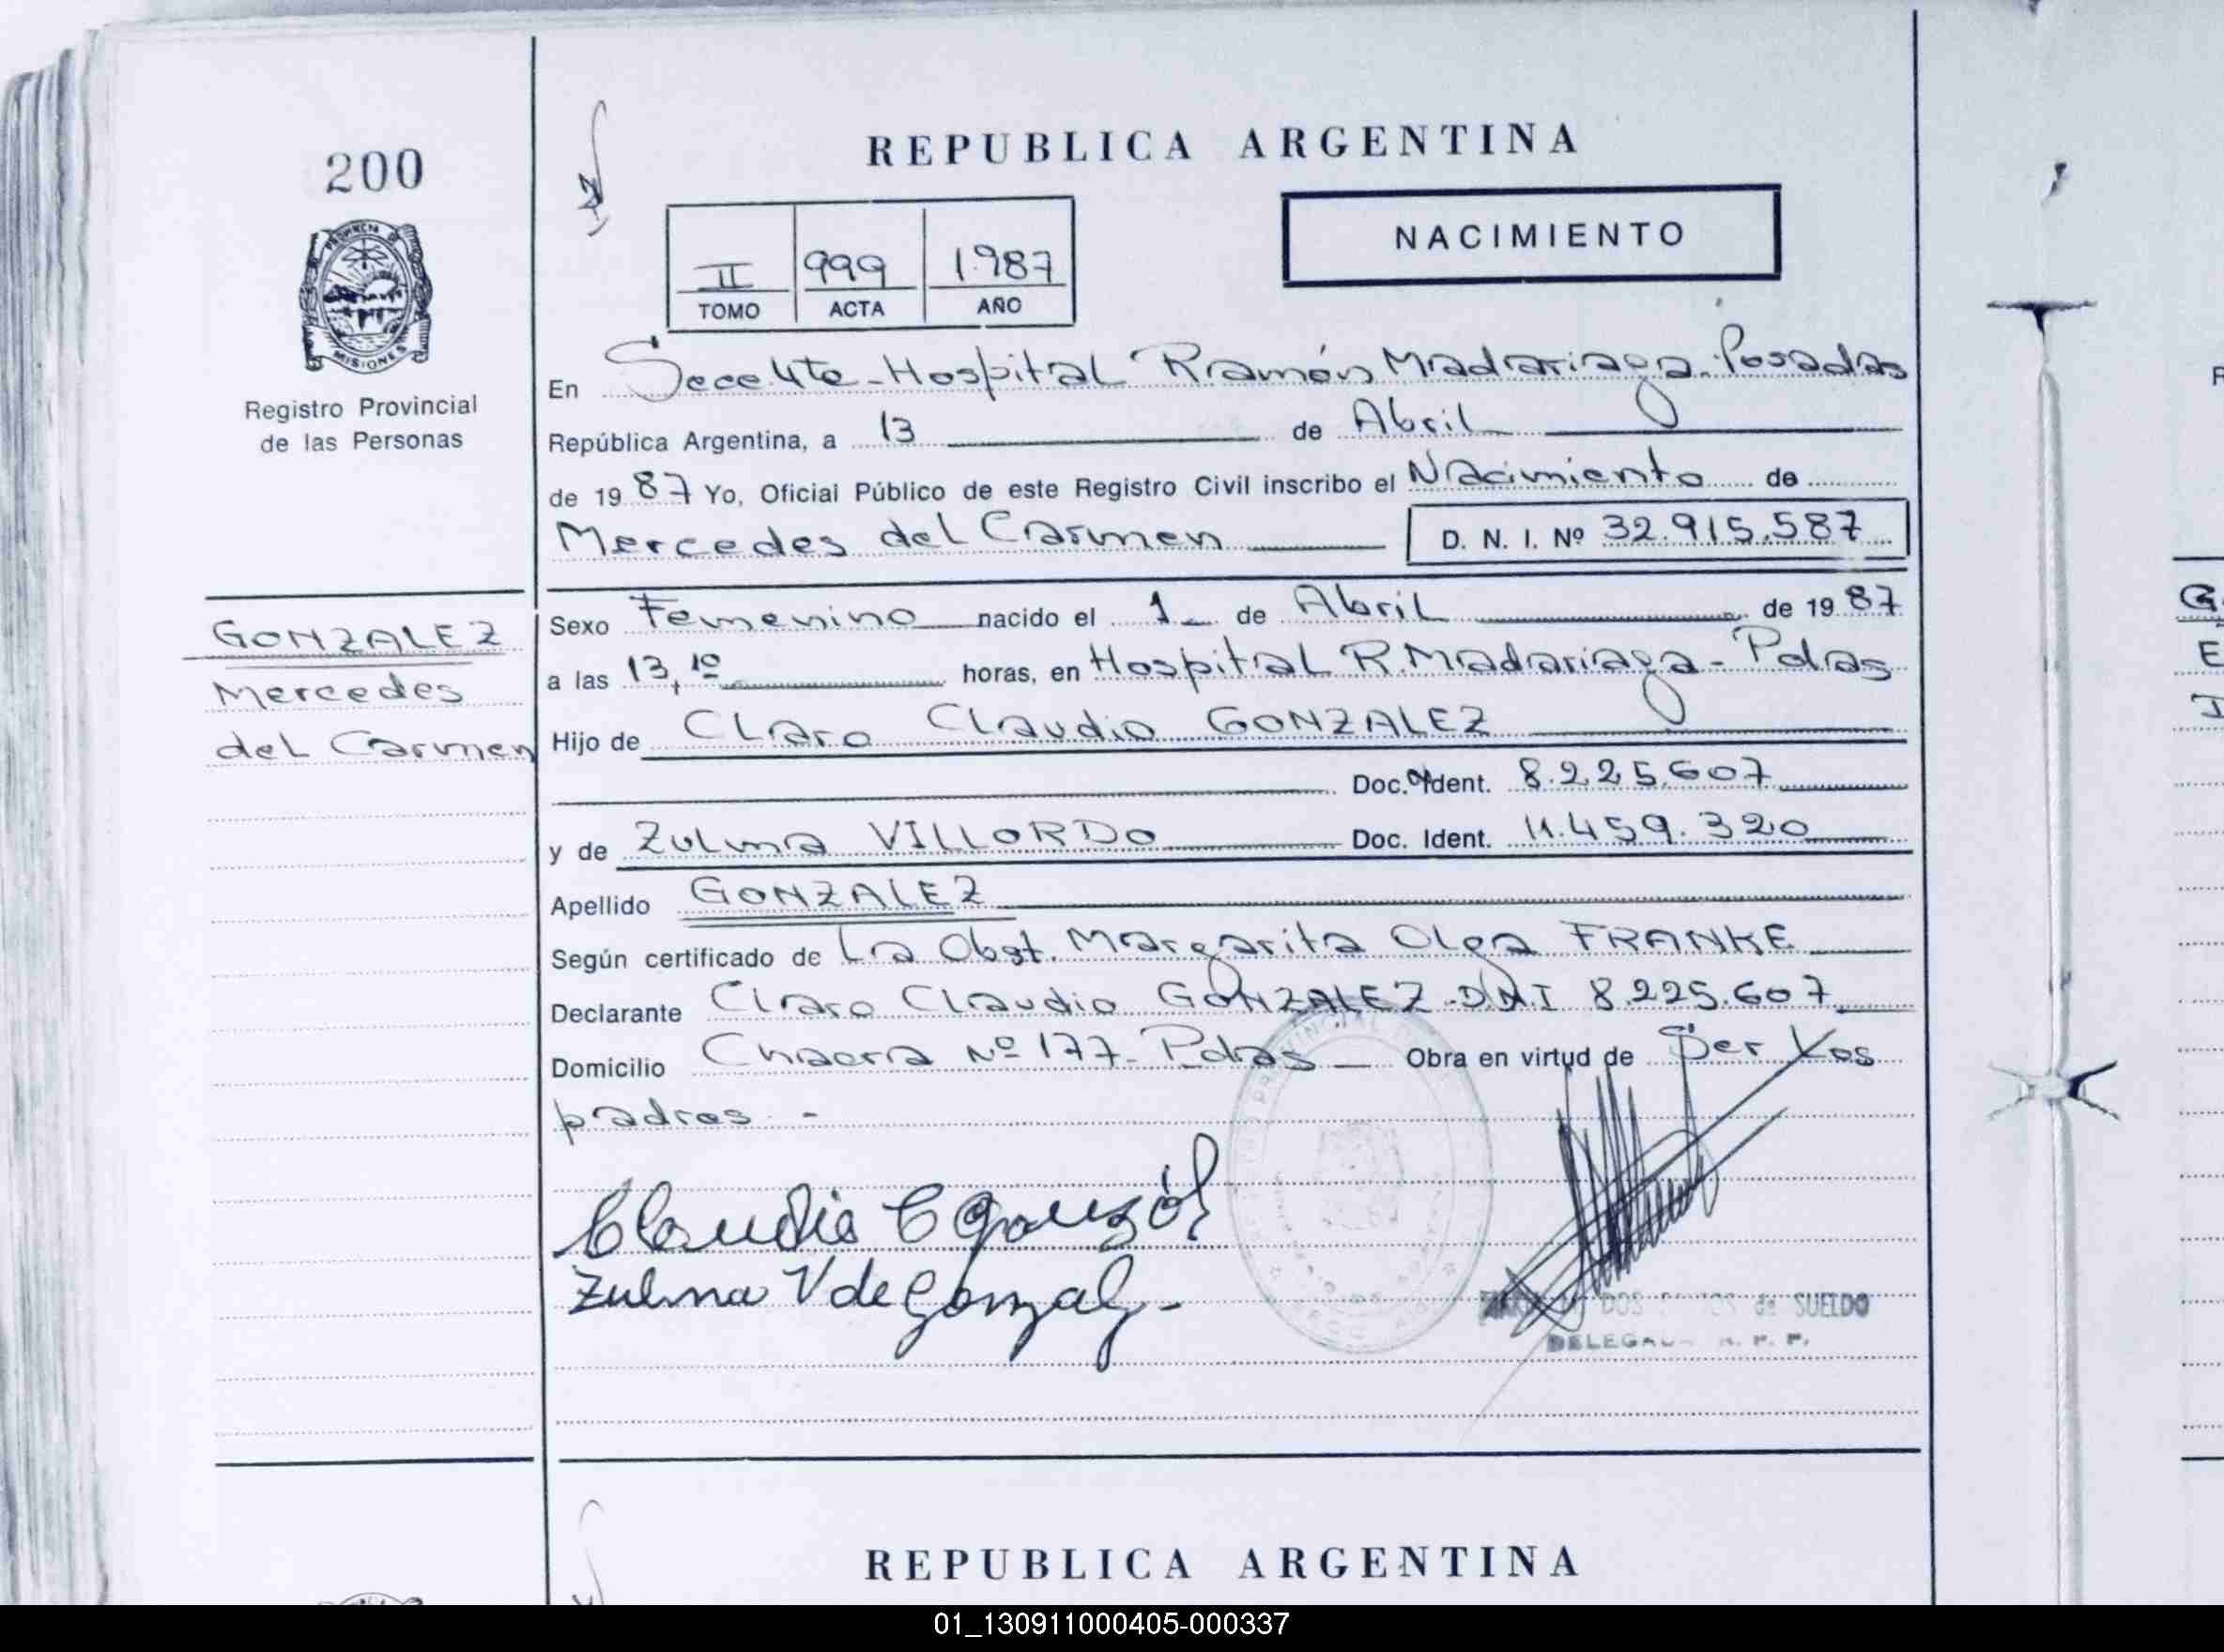 200
PROVINCIA DE
MISIONES
Registro Provincial
de las Personas
GONZALEZ
Mercedes
del Carmen
REPUBLICA ARGENTINA
II 999 1.987
TOMO ACTA AÑO
NACIMIENTO
En Secc 4ta - Hospital Ramón Madariaga - Posadas
República Argentina, a 13 de Abril
de 19 87 Yo, Oficial Público de este Registro Civil inscribo el Nacimiento de
Mercedes del Carmen D. N. I. Nº 32.915.587
Sexo Femenino nacido el 1 de Abril de 19 87
a las 13,10 horas, en Hospital R. Madariaga - Pdas
Hijo de Claro Claudio GONZALEZ
Doc. Ident. 8.225.607
y de Zulma VILLORDO Doc. Ident. 11.459.320
Apellido GONZALEZ
Según certificado de La Obst. Margarita Olga FRANKE
Declarante Claro Claudio GONZALEZ - D.N.I 8.225.607
Domicilio Chacra Nº 177 - Pdas Obra en virtud de Ser los
padres. -
Claudio C
Zulma V de Gonzalez -
DOS de SUELDO
R. P. P.
REPUBLICA ARGENTINA
01_130911000405-000337